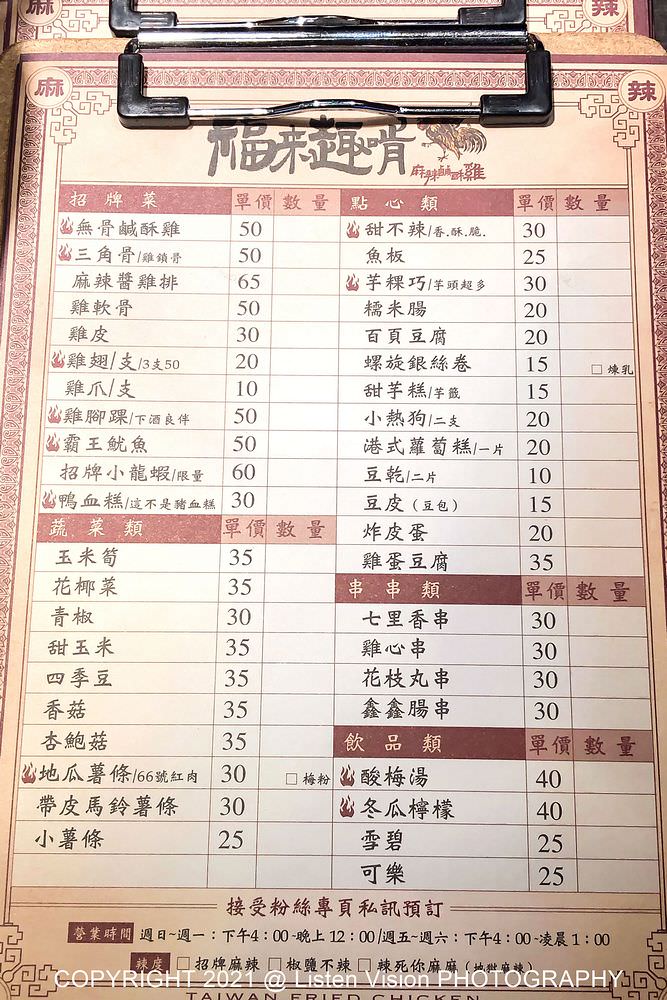 麻
辣
麻
辣
福來趣啃
麻辣鹹酥雞
招牌菜 單價 數量
無骨鹹酥雞 50
三角骨/雞鎖骨 50
麻辣醬雞排 65
雞軟骨 50
雞皮 30
雞翅/支/3支50 20
雞爪/支 10
雞腳踝/下酒良伴 50
霸王魷魚 50
招牌小龍蝦/限量 60
鴨血糕/這不是豬血糕 30
蔬菜類 單價 數量
玉米筍 35
花椰菜 35
青椒 30
甜玉米 35
四季豆 35
香菇 35
杏鮑菇 35
地瓜薯條/66號紅肉 30 □梅粉
帶皮馬鈴薯條 30
小薯條 25
點心類 單價 數量
甜不辣/香.酥.脆. 30
魚板 25
芋粿巧/芋頭超多 30
糯米腸 20
百頁豆腐 20
螺旋銀絲卷 15 □煉乳
甜芋糕/芋籤 15
小熱狗/二支 20
港式蘿蔔糕/一片 20
豆乾/二片 10
豆皮(豆包) 15
炸皮蛋 20
雞蛋豆腐 35
串串類 單價 數量
七里香串 30
雞心串 30
花枝丸串 30
鑫鑫腸串 30
飲品類 單價 數量
酸梅湯 40
冬瓜檸檬 40
雪碧 25
可樂 25
接受粉絲專頁私訊預訂
營業時間 週日~週一：下午4：00~晚上12：00/週五~週六：下午4：00~凌晨1：00
辣度 □招牌麻辣 □椒鹽不辣 □辣死你麻麻(地獄麻辣)
COPYRIGHT 2021 @ Listen Vision PHOTOGRAPHY
TAIWAN FRIED CHICKEN